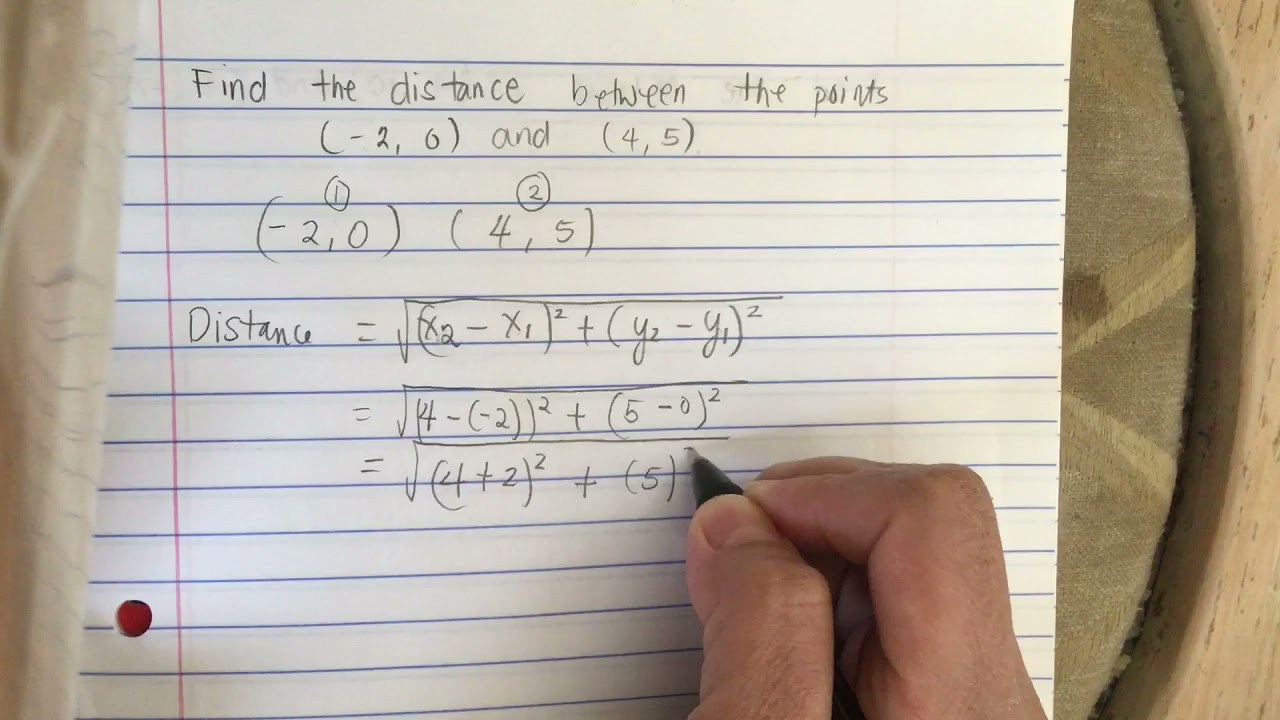 Find the distance between the points
(-2, 0) and (4, 5).
① ②
(-2, 0) (4, 5)
Distance = √(x₂ - x₁)² + (y₂ - y₁)²
= √(4 - (-2))² + (5 - 0)²
= √(4 + 2)² + (5)